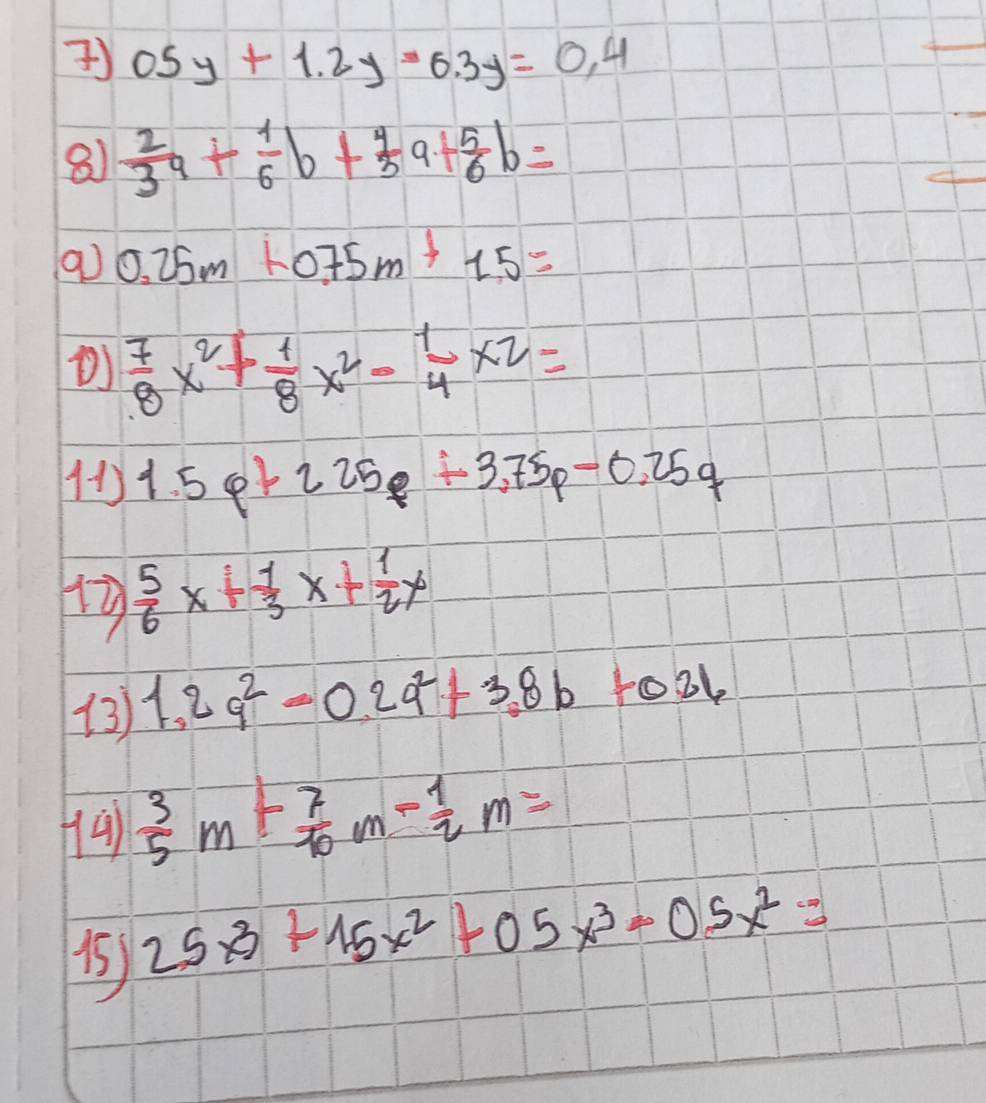 7) 05y + 1.2y - 0.3y = 0,4
8) 2/3 a + 1/6 b + 4/3 a + 5/6 b =
9) 0.25m + 0.75m + 1.5 =
10) 7/8 x² + 1/8 x² - 1/4 x2 =
11) 1.5p + 2 25q + 3,75p - 0,25q
12) 5/6 x + 1/3 x + 1/2 x
13) 1,2a² - 0.2a² + 3.8b + 0 2b
14) 3/5 m + 7/10 m - 1/2 m =
15) 2.5x3 + 1.5x² + 05x³ - 0.5x² =